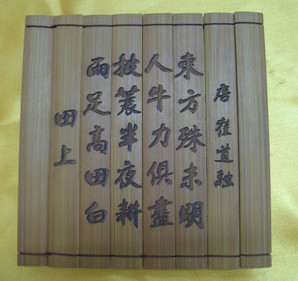 田上
雨足高田白
披蓑半夜耕
人牛力俱盡
東方殊未明
唐崔道融